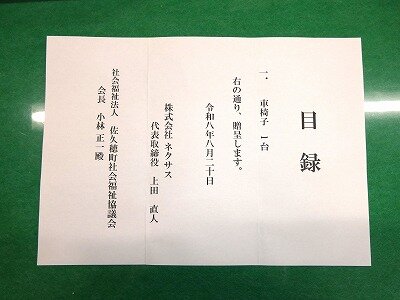 目録
一. 車椅子 1台
右の通り、贈呈します。
令和八年八月二十日
株式会社 ネクサス
代表取締役 上田 直人
社会福祉法人 佐久穂町社会福祉協議会
会長 小林 正一 殿